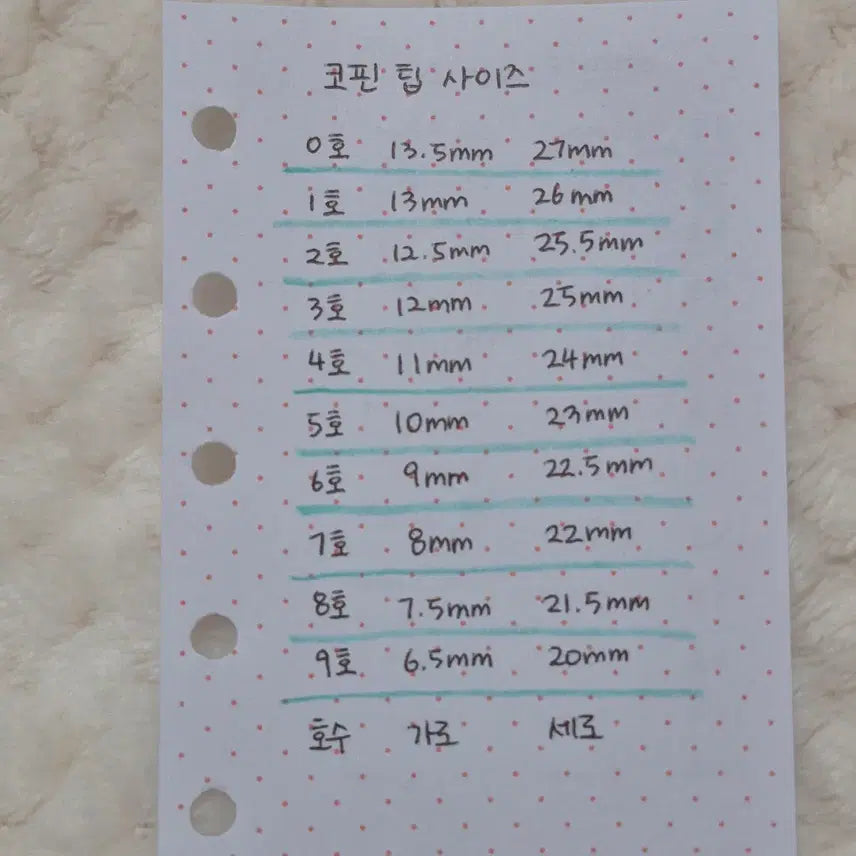 코핀 팁 사이즈
0호 13.5mm 27mm
1호 13mm 26mm
2호 12.5mm 25.5mm
3호 12mm 25mm
4호 11mm 24mm
5호 10mm 23mm
6호 9mm 22.5mm
7호 8mm 22mm
8호 7.5mm 21.5mm
9호 6.5mm 20mm
호수 가로 세로